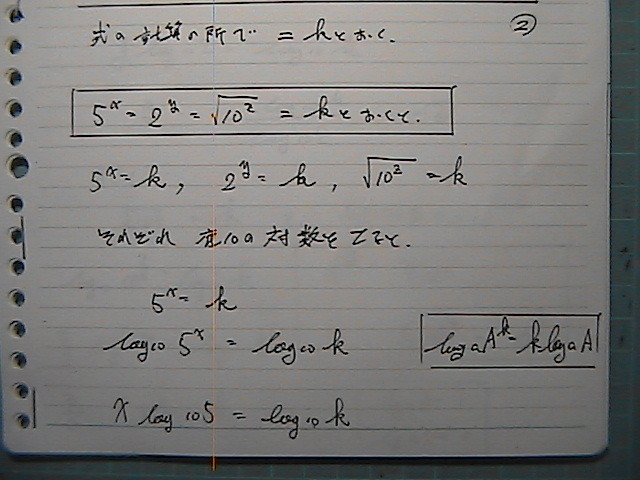 ②
式の計算の所で = kとおく.
5^x = 2^y = √10^z = kとおくと.
5^x = k, 2^y = k, √10^z = k
それぞれ 底10の対数をとると.
5^x = k
log₁₀ 5^x = log₁₀ k
logₐA^k = k logₐA
x log₁₀5 = log₁₀ k